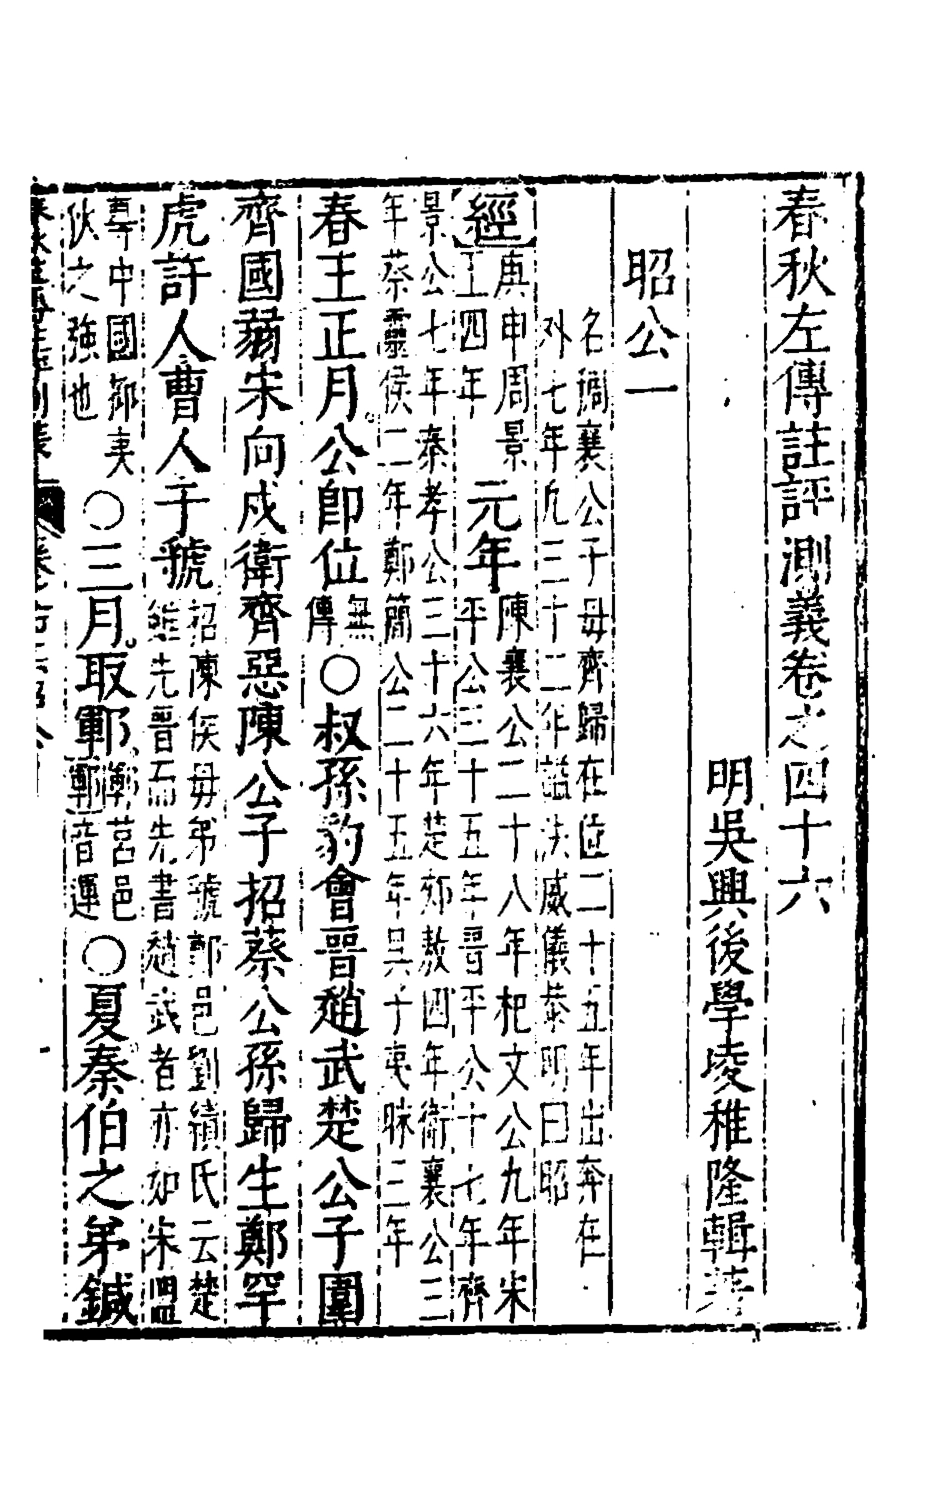 春秋左傳註評測義卷之四十六
明吳興後學凌稚隆輯著
昭公一
名裯襄公子母齊歸在位二十五年出奔在
外七年凡三十二年諡法威儀恭明曰昭
經
庚申周景
王四年
元年
陳襄公二十八年杞文公九年宋
平公三十五年晉平公十七年齊
景公七年秦孝公三十六年楚郟敖四年衛襄公三
年蔡靈侯二年鄭簡公二十五年吳子夷昧三年
春王正月公卽位
無
傳
○叔孫豹會晉趙武楚公子圍
齊國弱宋向戌衛齊惡陳公子招蔡公孫歸生鄭罕
虎許人曹人于虢
招陳侯母弟虢鄭邑劉績氏云楚
雖先晉而先書趙武者亦如宋盟
尊中國卻夷
狄之強也
○三月取鄆
鄆莒邑
鄆音運
○夏秦伯之弟鍼